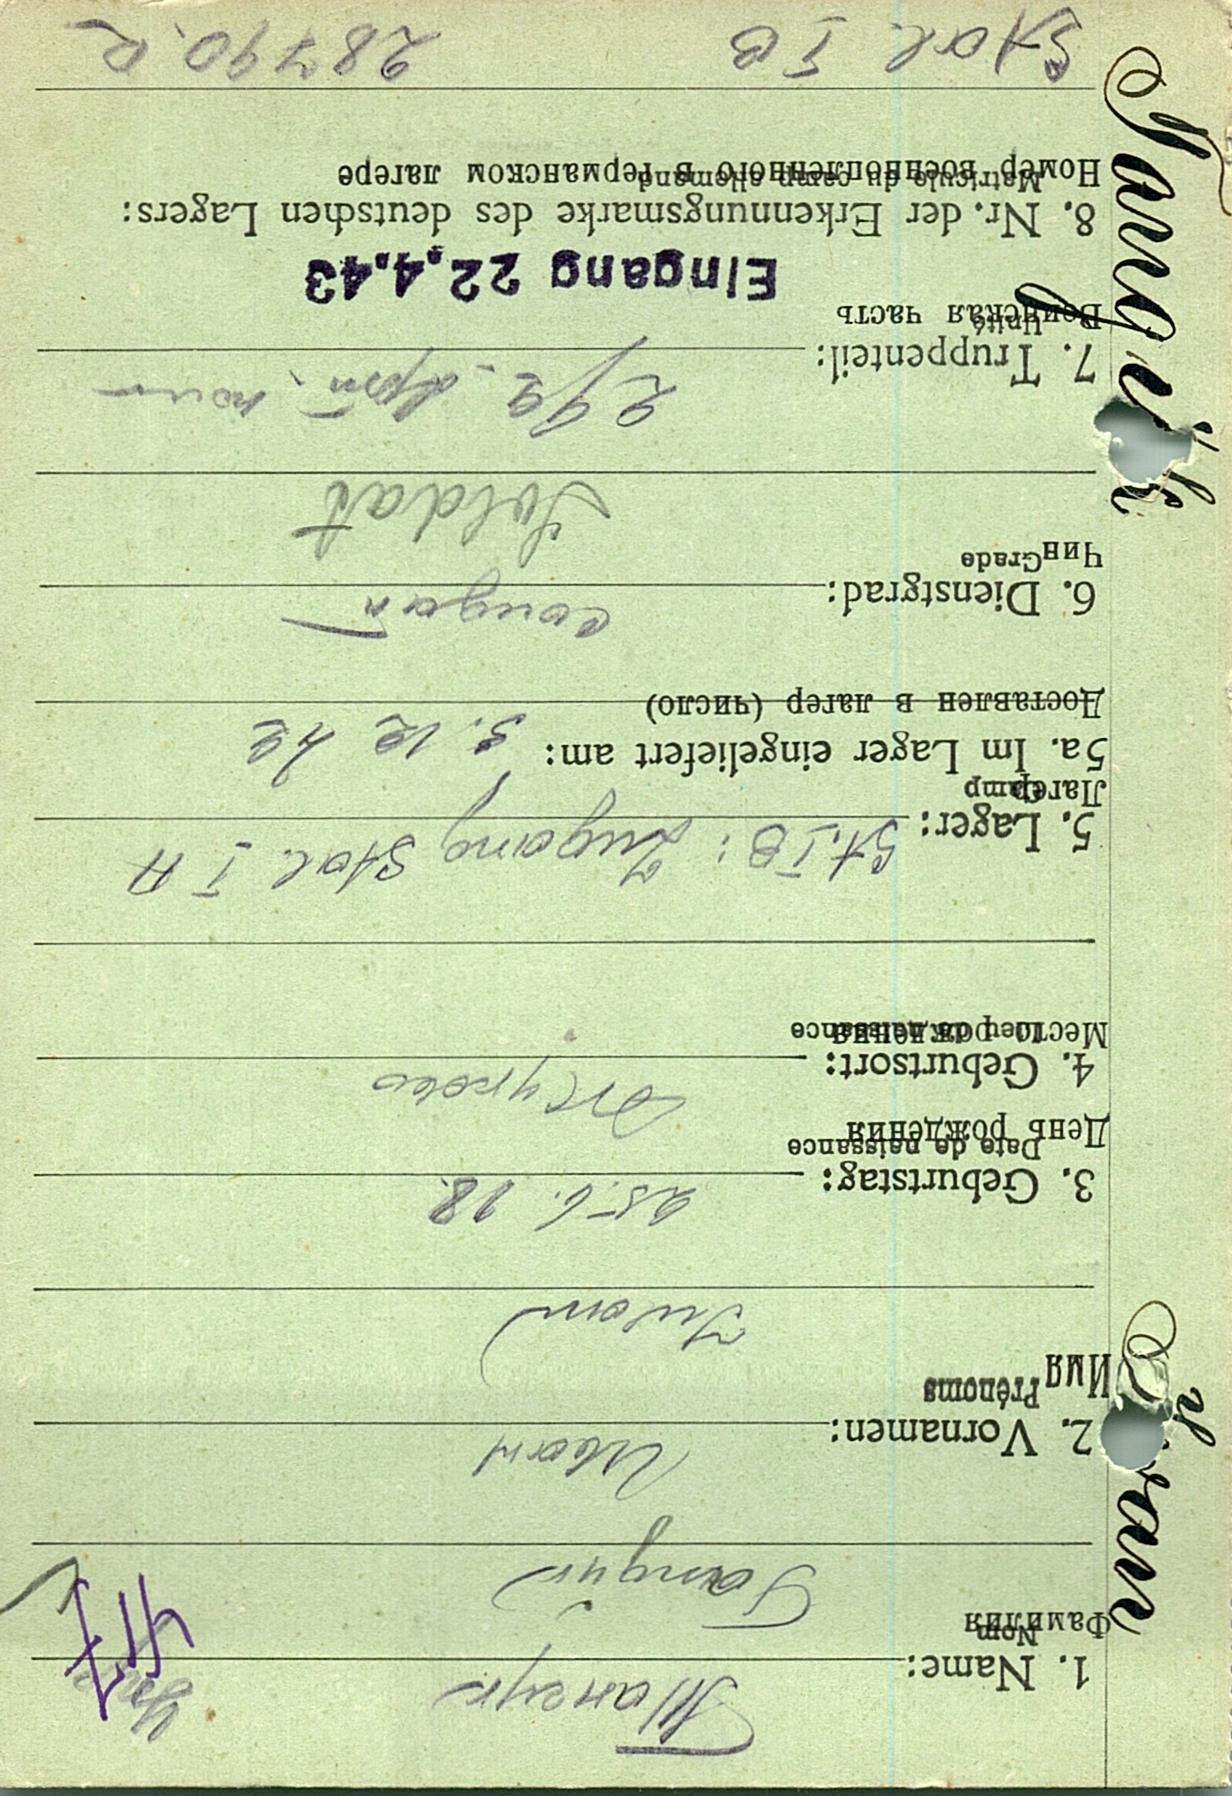 Iwan
1. Name:
Фамилия
Nom
2. Vornamen:
Иван
Имя
Prénoms
Iwan
3. Geburtstag: 25.6.18.
День рождения
Date de naissance
4. Geburtsort:
Место рождения
Lieu de naissance
5. Lager: St. I B: Zugang Stal. I A
Лагерь
Camp
5a. Im Lager eingeliefert am: 5.12.42
Доставлен в лагерь (число)
6. Dienstgrad: солдат
Чин
Grade
Soldat
7. Truppenteil: 292
Воинская часть
Unité
Eingang 22.4.43
8. Nr. der Erkennungsmarke des deutschen Lagers:
Номер военнопленного в германском лагере
Matricule du camp allemand
Stal. I B 28790.R